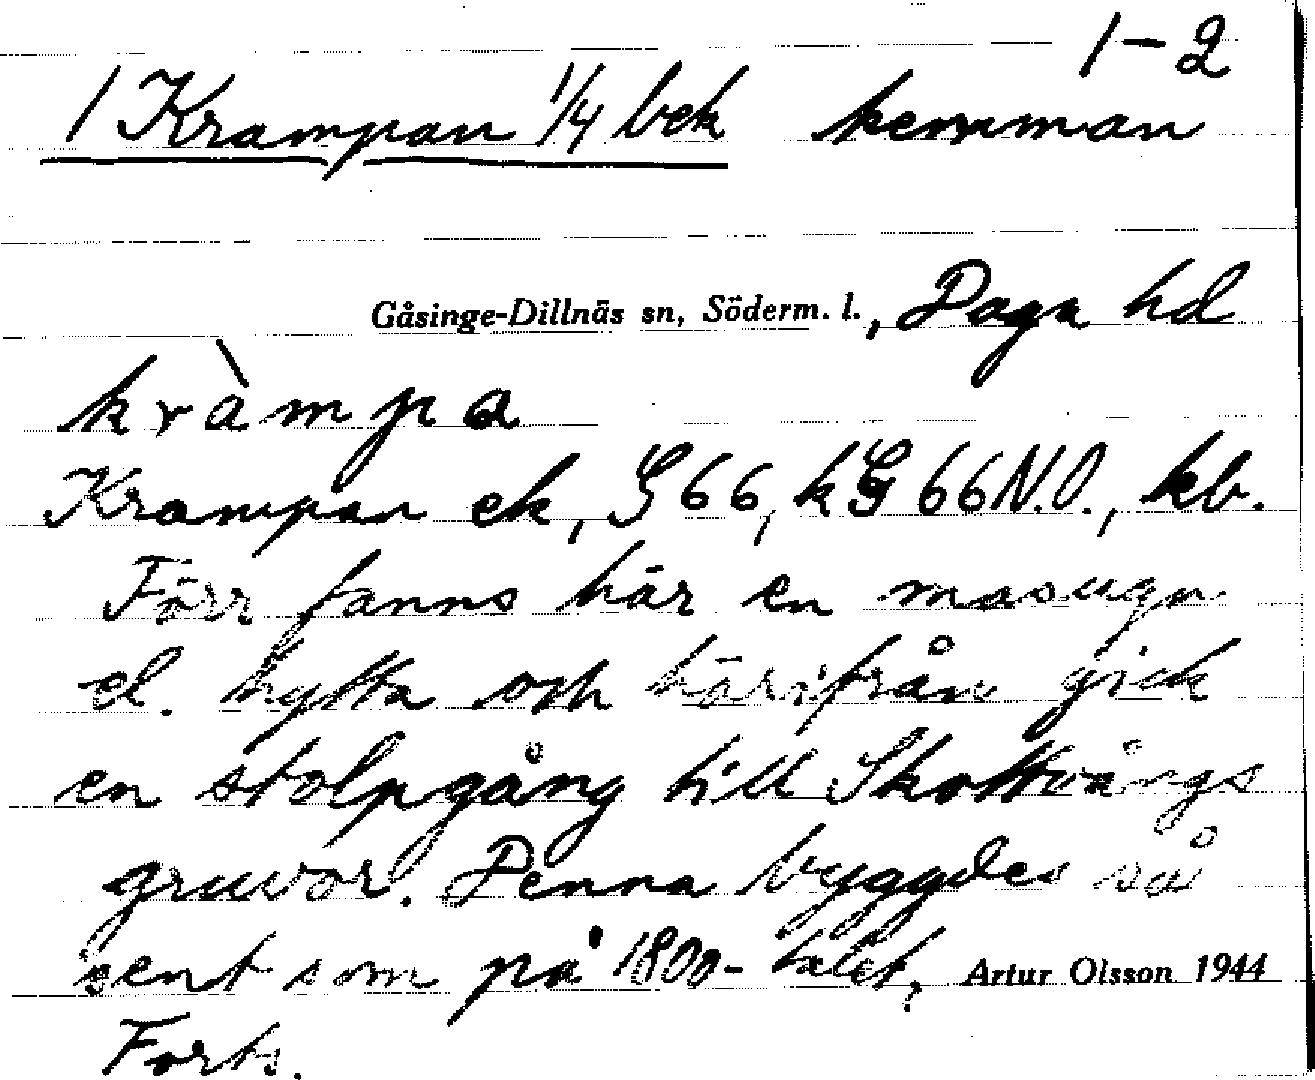 1-2
1 Krampan 1/4 bek hemman
Gåsinge-Dillnäs sn, Söderm. l., Daga hd
kràmpa
Krampan ek, G 66, kG 66 N.O., kb.
Förr fanns här en masugn
el. hytta och härifrån gick
en stolpgång till Skottvångs
gruvor. Denna byggdes så
sent som på 1800-talet,
Artur Olsson 1944
Forts.